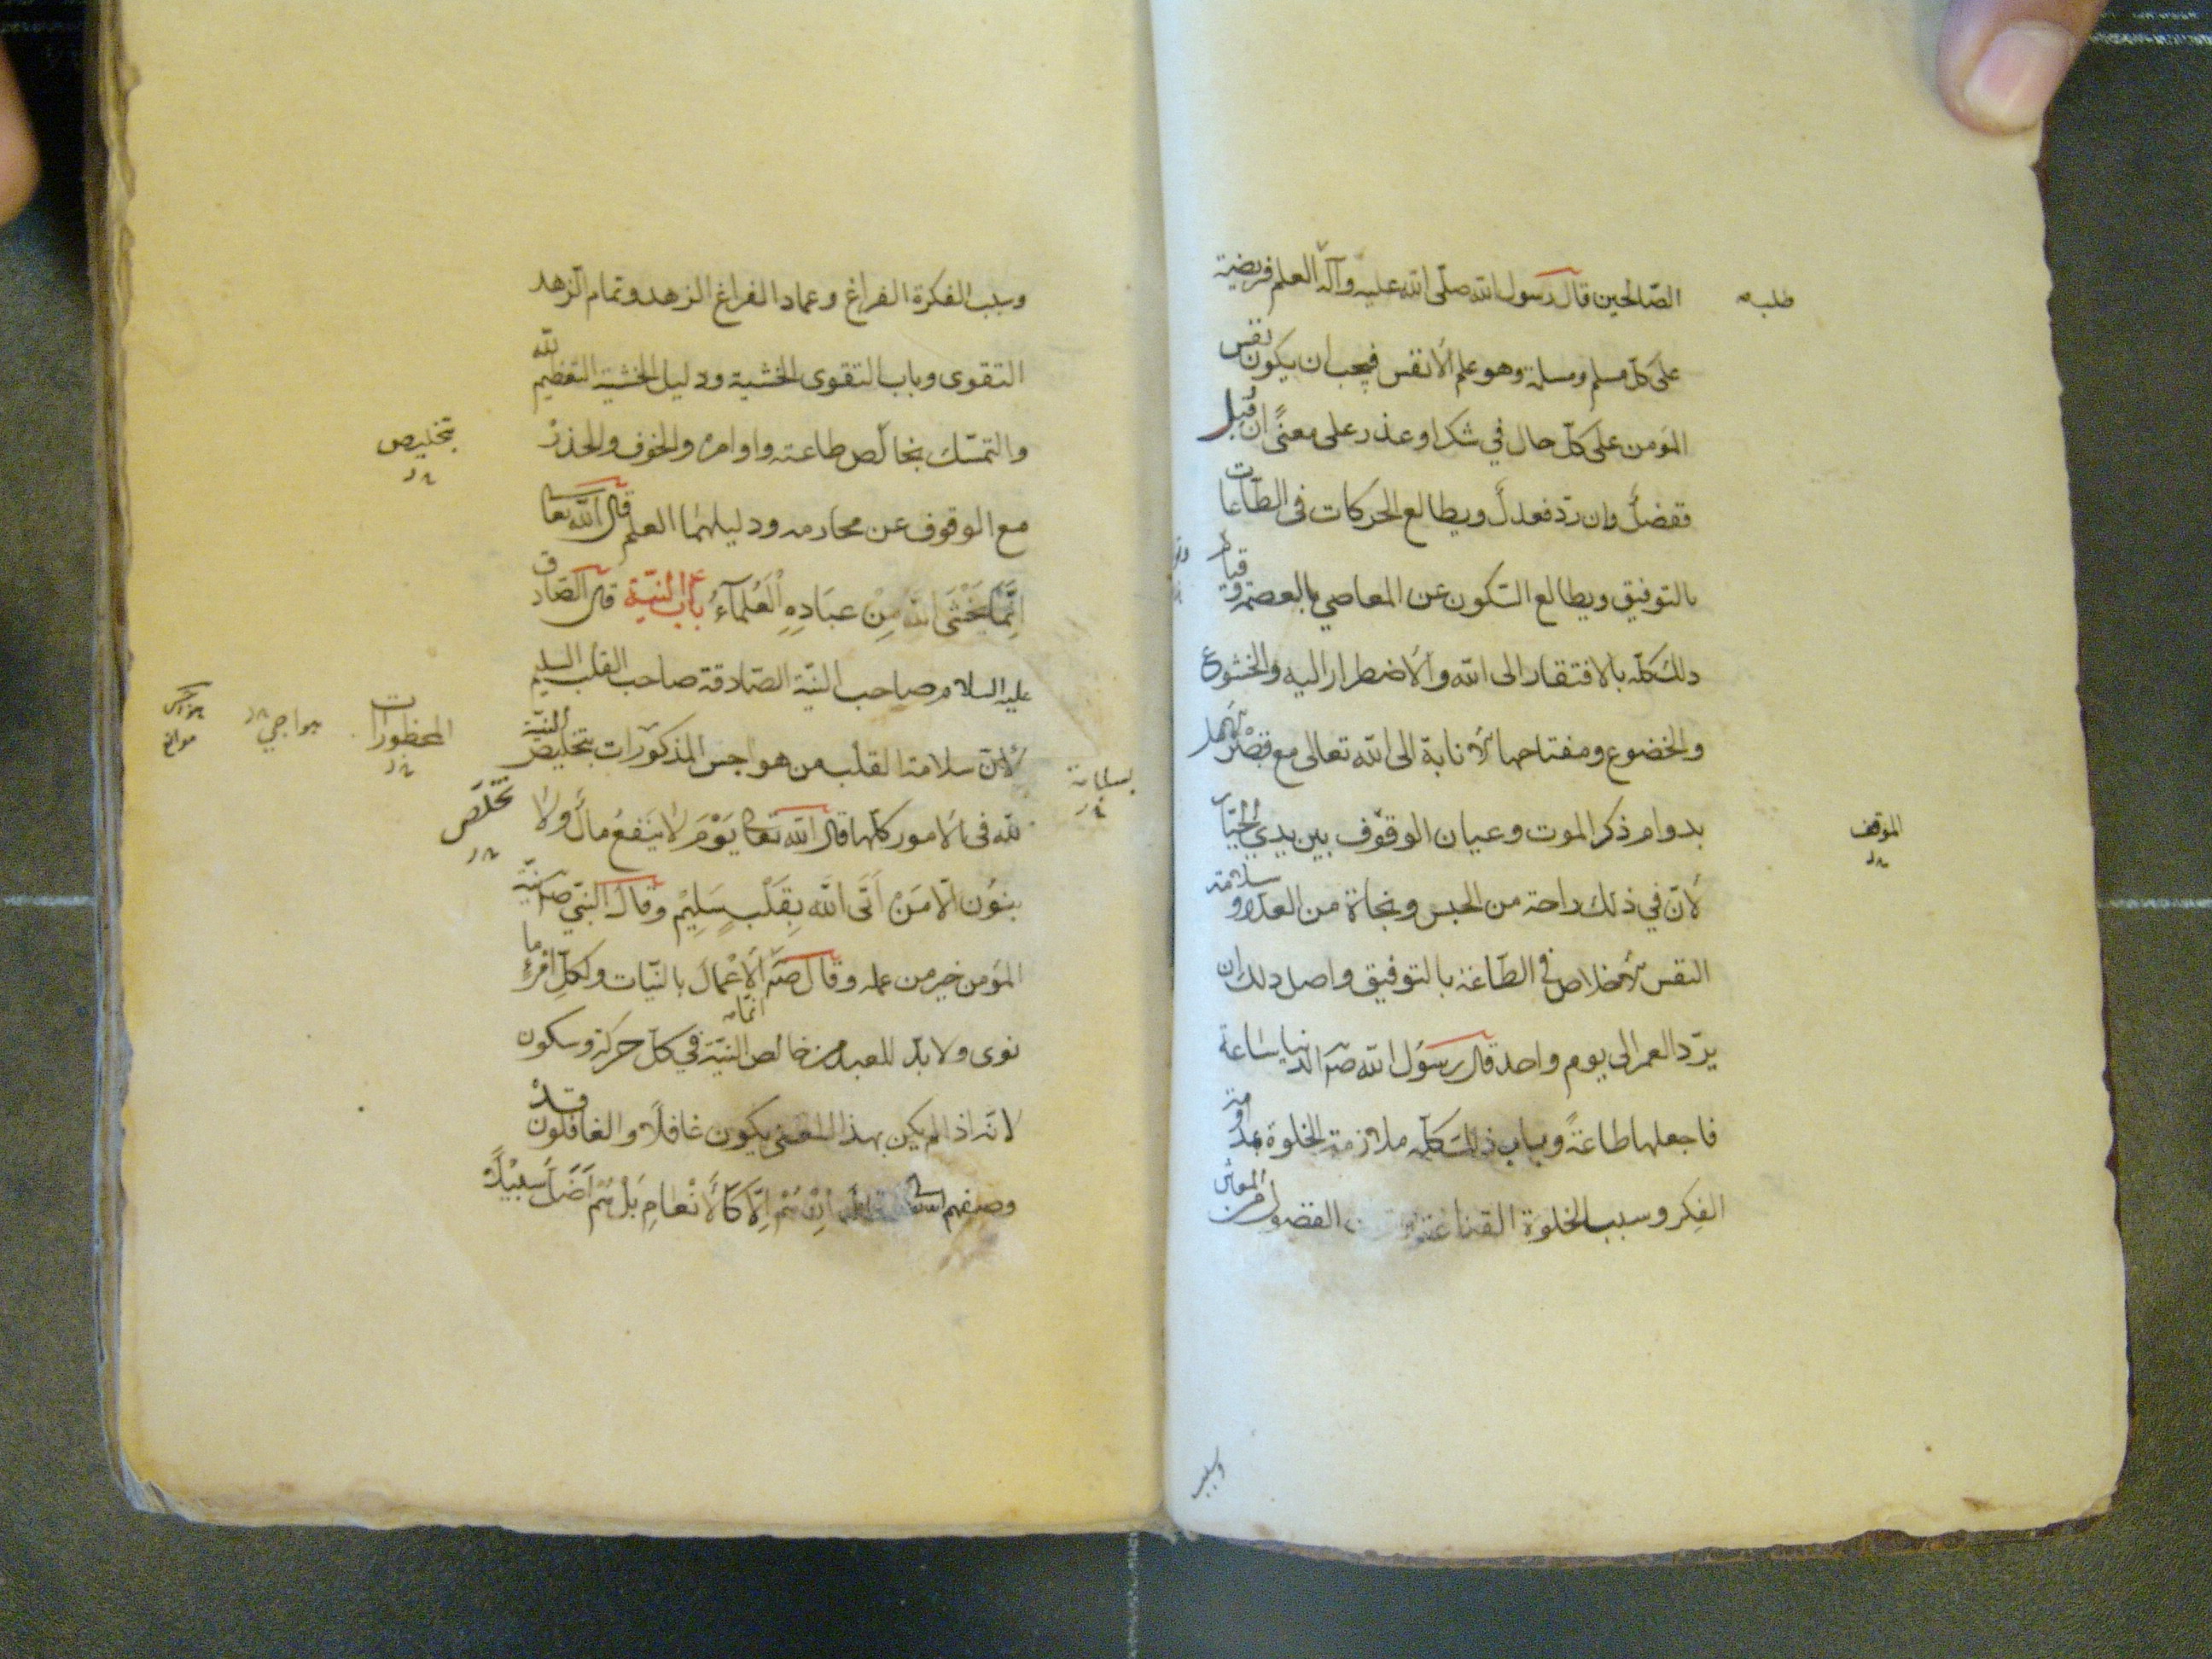 الصّالحين قال رسول الله صلّى الله عليه وآله العلم فريضة
طلب
على كلّ مسلم ومسلمة وهو علم الأنفس فيجب ان يكون نفس
المؤمن على كلّ حال في شكر او عذر على معنًى ان قبل
ففضلٌ وان ردّ فعدلٌ ويطالع الحركات فى الطّاعات
بالتوفيق ويطالع السّكون عن المعاصي بالعصمة وقيام
ذلك كلّه بالافتقار الى الله والأضطرار اليه والخشوع
والخضوع ومفتاحها الانابة الى الله تعالى مع قصر الامل
بدوام ذكر الموت وعيان الوقوف بين يدي الجبّار
الموقف
لأنّ في ذلك راحة من الحبس ونجاة من العدو وسلامة
النفس الأخلاص في الطّاعة بالتوفيق واصل ذلك ان
يردّ العمر الى يوم واحد قال رسول الله صلم الدنيا ساعة
فاجعلها طاعةً وباب ذلك كلّه ملازمة الخلوة بمداومة
الفكر وسبب الخلوة القناعة الفضول من المعاش
وسبب
وسبب الفكرة الفراغ وعماد الفراغ الزهد وتمام الزهد
التقوى وباب التقوى الخشية ودليل الخشية التعظيم لله
والتمسّك بخالص طاعته واوامره والخوف والحذر
بتخليص
مع الوقوف عن محارمه ودليلهما العلم قال الله تعالى
إنّما يَخْشَى الله مِنْ عبَادِهِ الْعُلمآءُ باب النيّة قال الصّادق
عليه السلام صاحب النيّة الصّادقة صاحب القلب السليم
لأنّ سلامة القلب من هواجس المذكورات بتخليص النيّة
المحظورات
لله فى الأمور كلّها قال الله تعالى يَوْمَ لا يَنفعُ مالٌ ولا
تخلص
بنوُن الّا مَنْ اَتَى اللهَ بِقَلْبٍ سَلِيْم وقال النبّي صلم نيّة
المؤمن خير من عمله وقال صلم الأعْمال بالنيّات ولكلّ امرئ ما
انّما
نوى ولا بدّ للعبد من خالص النيّة في كلّ حركة وسكون
لانّه اذا لم يكن بهذا المعنى يكون غافلاً والغافلون قد
وصفهم الله تعالى اِنْ هُمْ اِلَّا كَالأَنْعامِ بَلْ هُمْ اَضَلّ سَبِيْلاً